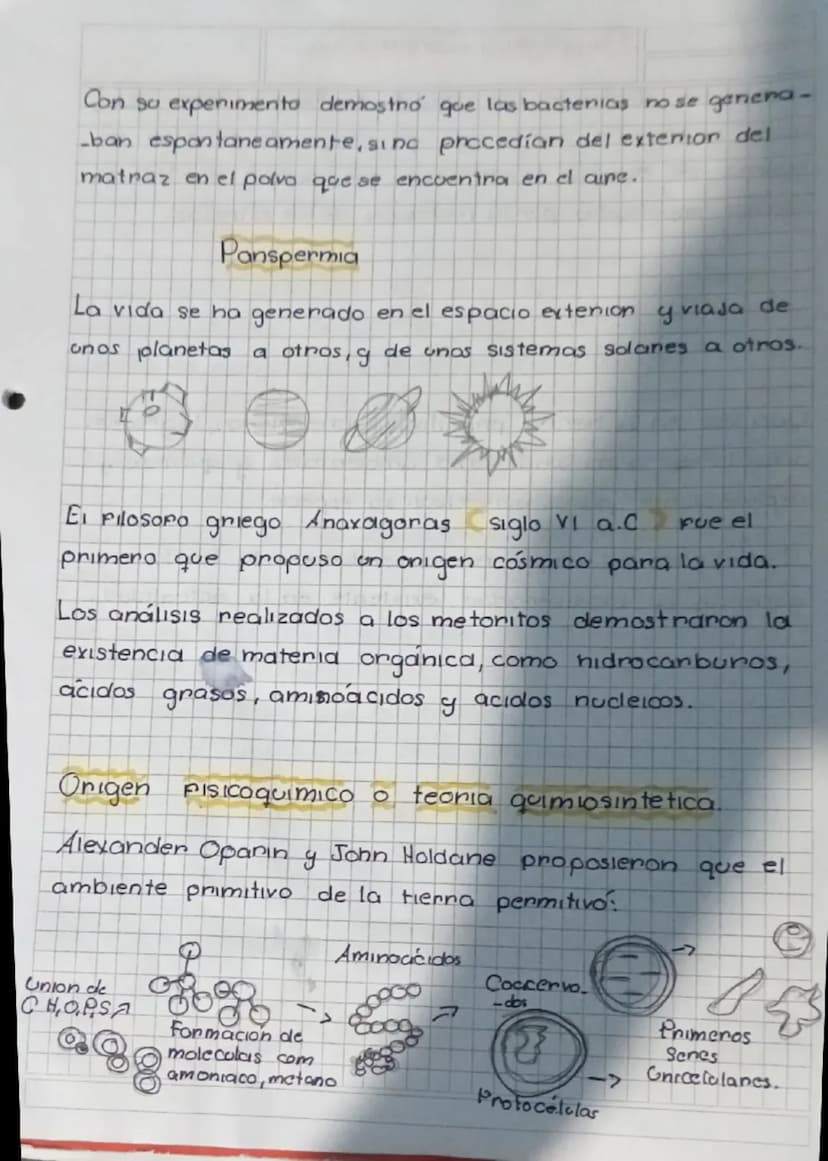 Con su experimento demostró que las bacterias no se genera-
-ban espontaneamente, sino procedían del exterior del
matraz en el polvo que se encuentra en el aire.
Panspermia
La vida se ha generado en el espacio exterior y viaja de
unos planetas a otros, y de unos sistemas solares a otros.
El Filosofo griego Anaxagoras (siglo VI a.C) fue el
primero que propuso un origen cósmico para la vida.
Los análisis realizados a los metoritos demostraron la
existencia de materia orgánica, como hidrocarburos,
ácidos grasos, aminoácidos y acidos nucleicos.
Origen Fisicoquimico o teoria quimiosintetica.
Alexander Oparin y John Holdane proposieron que el
ambiente primitivo de la tierra permitivó:
Union de
C H,O,P,S,
Formacion de
molecolas com
amoniaco, metano
Aminoácidos
Coacervo-
-dos
Protocélulas
Primeros
Seres
Unicelulares.